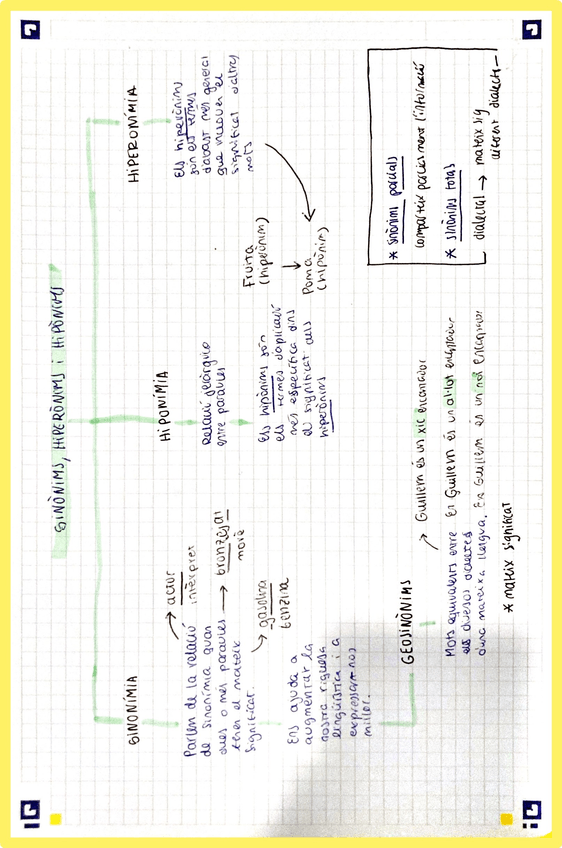 SINÒNIMS, HIPERÒNIMS i HIPÒNIMS
SINONÍMIA
Parlem de la relació
de sinonímia quan
dues o més paraules
tenen el mateix
significat.
actor
intèrpret
bronzejat
morè
gasolina
benzina
Ens ajuda a
augmentar la
nostra riquesa
lingüística i a
expressar-nos
millor.
GEOSINÒNIMS
Mots equivalents entre
els diversos dialectes
d'una mateixa llengua.
Guillem és un xic encantador
En Guillem és un al·lot encantador
En Guillem és un noi encantador
* mateix significat
HIPONÍMIA
Relació jeràrquica
entre paraules
Els hipònims són
els termes d'aplicació
més específica dins
el significat dels
hiperònims
HIPERONÍMIA
Els hiperònims
són els termes
d'abast més general
que inclouen el
significat d'altres
mots
Fruita
(hiperònim)
Poma
(hipònim)
* sinònims parcials
comparteix parcialment l'informació
* sinònims totals
dialectal → mateix sig
diferent dialecte